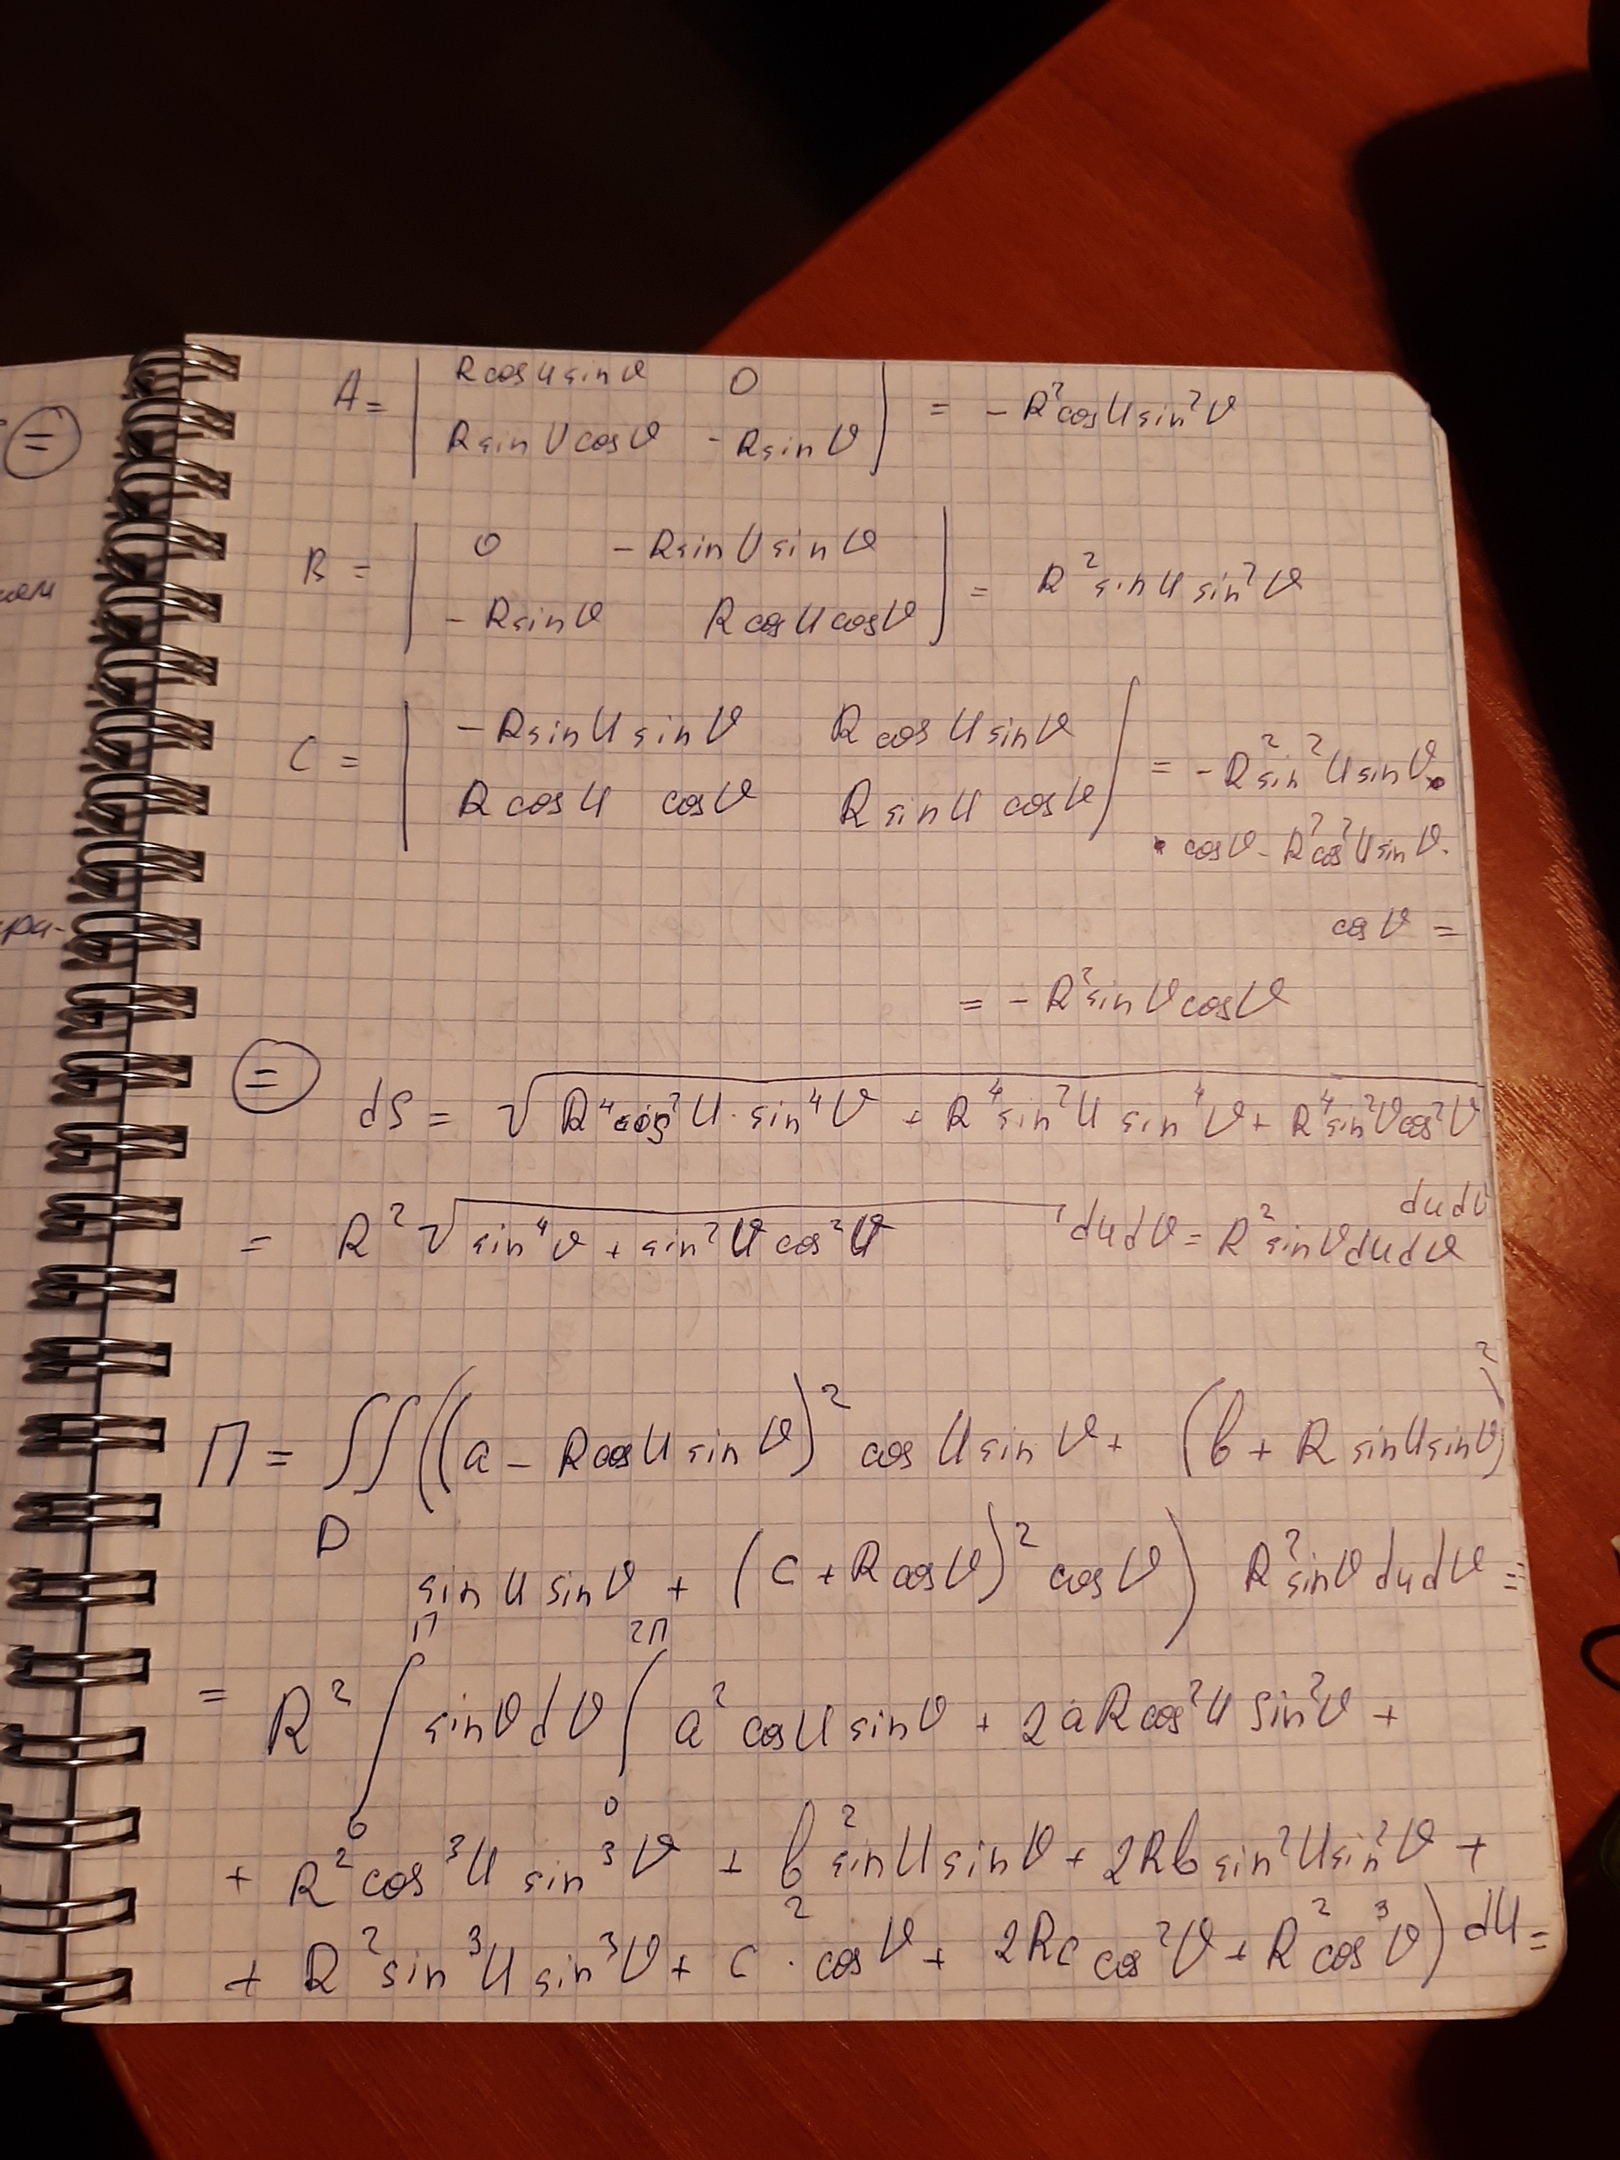 A = | R cos u sin v   0 |
| R sin u cos v   - R sin v | = - R² cos u sin² v
B = | 0   - R sin u sin v |
| - R sin v   R cos u cos v | = R² sin u sin² v
C = | - R sin u sin v   R cos u sin v |
| R cos u cos v   R sin u cos v | = - R² sin² u sin v ·
· cos v - R² cos² u sin v ·
cos v =
= - R² sin v cos v
=
ра-
= dS = √(R⁴ cos² u · sin⁴ v + R⁴ sin² u sin⁴ v + R⁴ sin² v cos² v)
du dv
= R² √(sin⁴ v + sin² v cos² v) du dv = R² sin v du dv
П = ∬ ((a - R cos u sin v)² cos u sin v + (b + R sin u sin v)²
D
sin u sin v + (c + R cos v)² cos v) R² sin v du dv =
= R² ∫₀^П sin v dv ∫₀^2П (a² cos u sin v + 2aR cos² u sin² v +
+ R² cos³ u sin³ v + b² sin u sin v + 2Rb sin² u sin² v +
+ R² sin³ u sin³ v + c² · cos v + 2Rc cos² v + R² cos³ v) du =